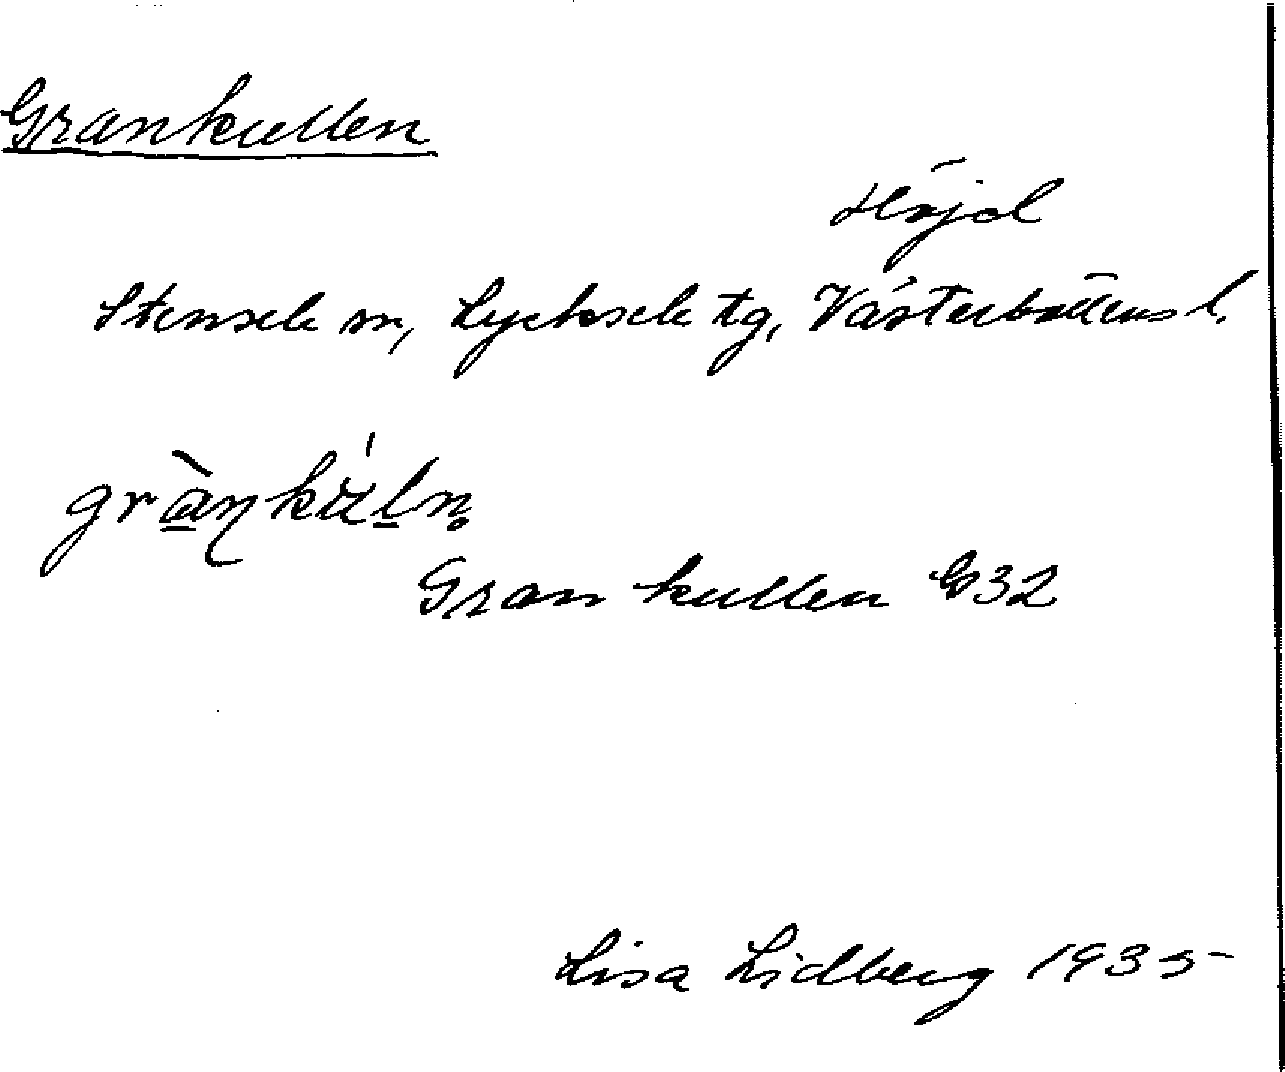 Grankullen
Höjd
Stensele sn, Lycksele tg, Västerbottens l.
Grankullen G32
Lisa Lidberg 1935